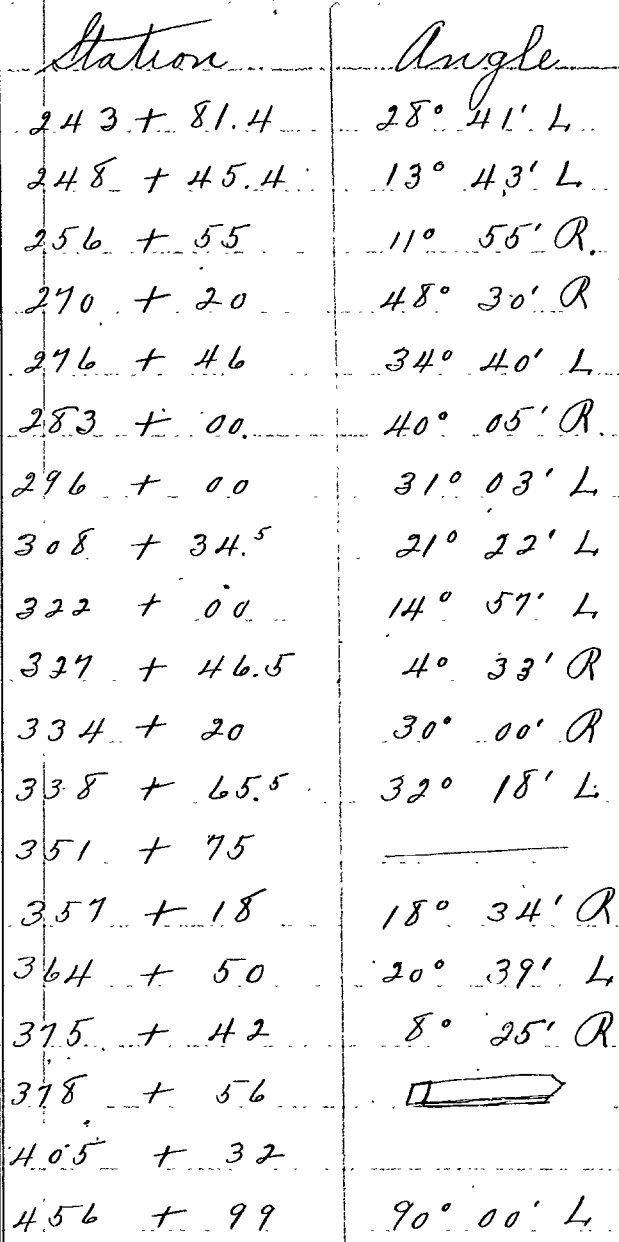 Station Angle
243 + 81.4 28° 41' L
248 + 45.4 13° 43' L
256 + 55 11° 55' R.
270 + 20 48° 30' R
276 + 46 34° 40' L
283 + 00. 40° 05' R.
296 + 00 31° 03' L
308 + 34.5 21° 22' L
322 + 00 14° 57' L
327 + 46.5 4° 33' R
334 + 20 30° 00' R
338 + 65.5 32° 18' L
351 + 75 —
357 + 18 18° 34' R
364 + 50 20° 39' L
375 + 42 8° 25' R
378 + 56
405 + 32
456 + 99 90° 00' L